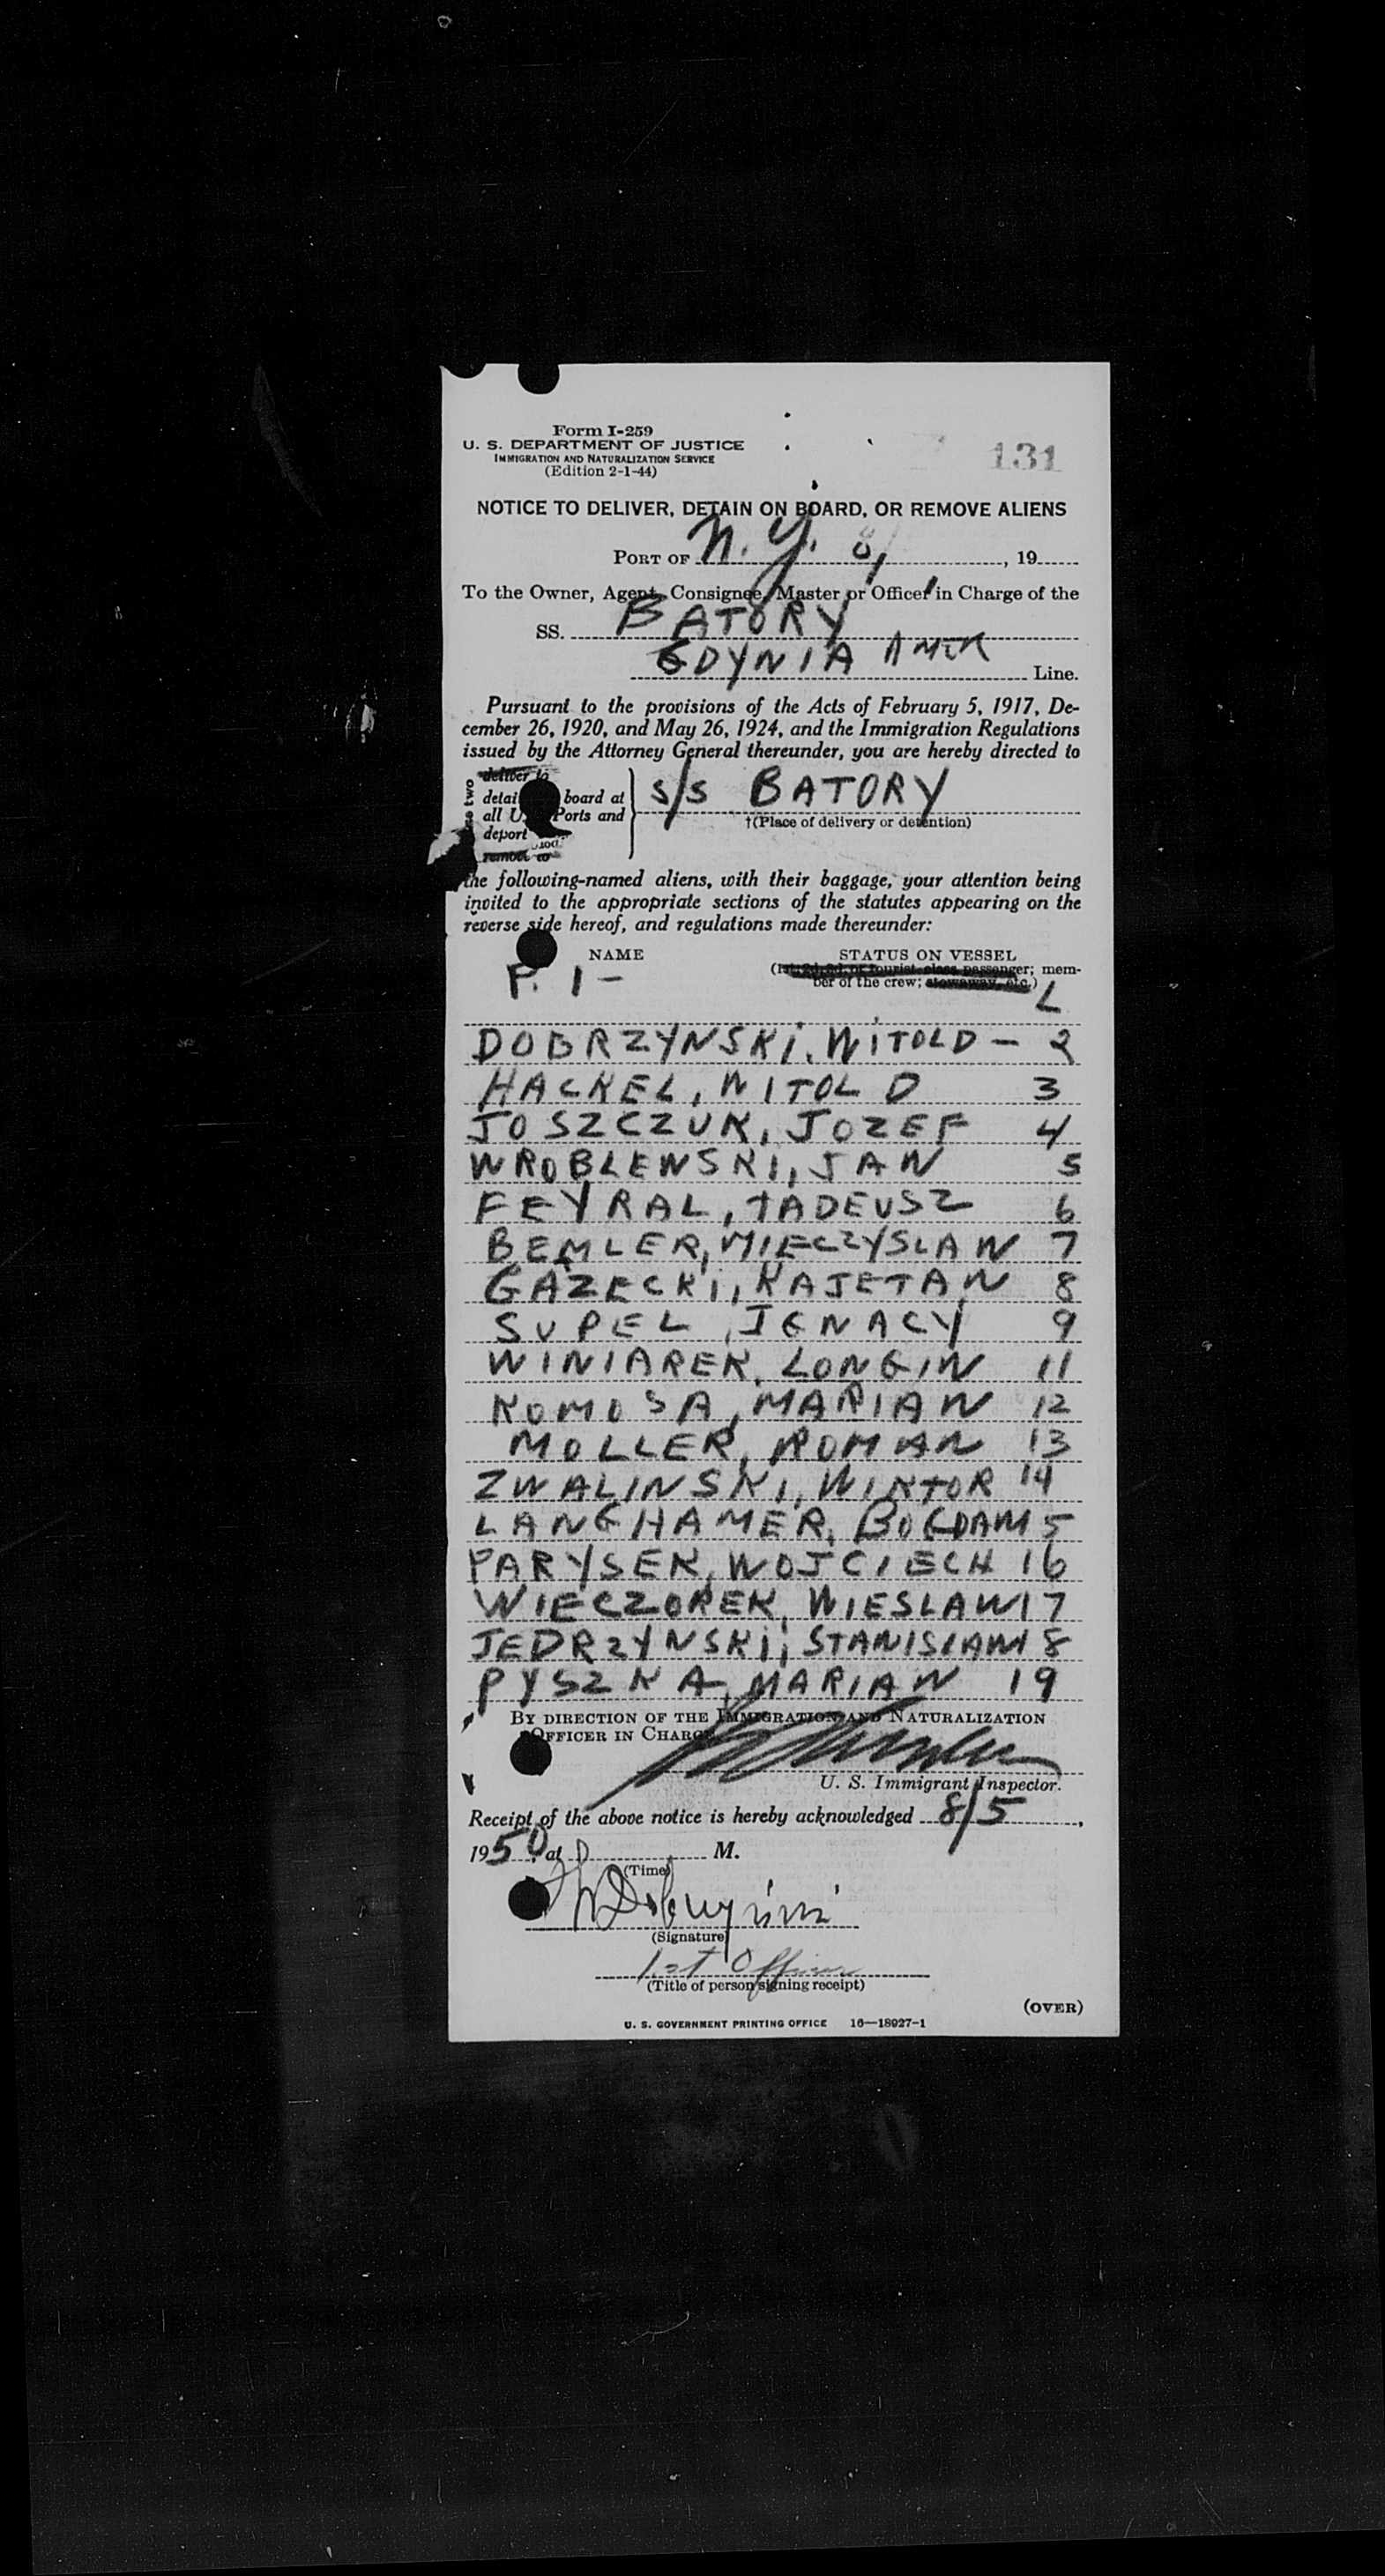 Form I-259
U. S. DEPARTMENT OF JUSTICE
IMMIGRATION AND NATURALIZATION SERVICE
(Edition 2-1-44)
131
NOTICE TO DELIVER, DETAIN ON BOARD, OR REMOVE ALIENS
PORT OF N. Y. , 19
To the Owner, Agent, Consignee, Master or Officer in Charge of the
SS. BATORY
GDYNIA AMER Line.
Pursuant to the provisions of the Acts of February 5, 1917, De-
cember 26, 1920, and May 26, 1924, and the Immigration Regulations
issued by the Attorney General thereunder, you are hereby directed to
deliver to
detai board at S/S BATORY
all U. Ports and
†(Place of delivery or detention)
deport
remove to
the following-named aliens, with their baggage, your attention being
invited to the appropriate sections of the statutes appearing on the
reverse side hereof, and regulations made thereunder:
NAME STATUS ON VESSEL
P. 1 - tourist class passenger; mem-
ber of the crew; stowaway, etc.)
L
DOBRZYNSKI, WITOLD - 2
HACKEL, WITOLD 3
JOSZCZUK, JOZEF 4
WROBLEWSKI, JAN 5
FEYRAL, TADEUSZ 6
BEMLER, MIECZYSLAW 7
GAZECKI, KAJETAN 8
SUPEL, IGNACY 9
WINIAREK, LONGIN 11
KOMOSA, MARIAN 12
MOLLER, ROMAN 13
ZWALINSKI, WIKTOR 14
LANGHAMER, BOGDAN 15
PARYSEK, WOJCIECH 16
WIECZOREK, WIESLAW 17
JEDRZYNSKI, STANISLAW 18
PYSZKA, MARIAN 19
BY DIRECTION OF THE IMMIGRATION AND NATURALIZATION
OFFICER IN CHARGE
U. S. Immigrant Inspector.
Receipt of the above notice is hereby acknowledged 8/5,
1950, at M.
(Time)
WDobrzyński
(Signature)
1st Officer
(Title of person signing receipt)
(OVER)
U. S. GOVERNMENT PRINTING OFFICE 16—18027-1